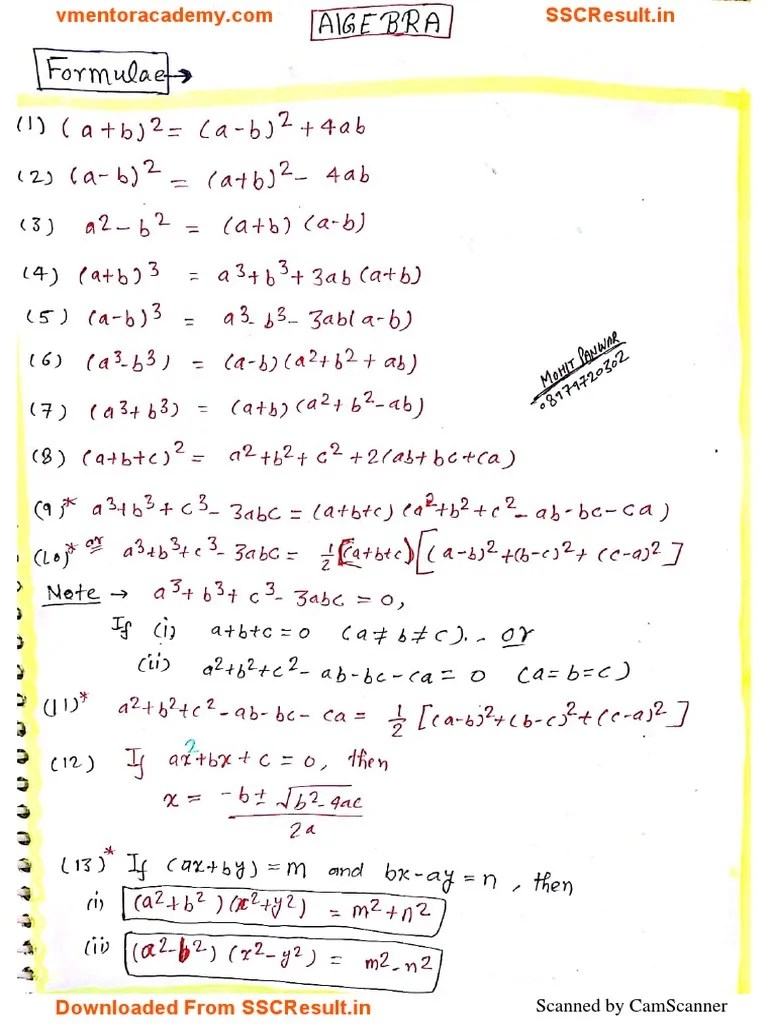 vmentoracademy.com
AlGEBRA
SSCResult.in
Formulae→
(1) (a+b)² = (a-b)² + 4ab
(2) (a-b)² = (a+b)² - 4ab
(3) a² - b² = (a+b) (a-b)
(4) (a+b)³ = a³+b³+3ab (a+b)
(5) (a-b)³ = a³-b³-3ab(a-b)
(6) (a³-b³) = (a-b) (a²+b²+ab)
MOHIT PANWAR
08979720302
(7) (a³+b³) = (a+b) (a²+b²-ab)
(8) (a+b+c)² = a²+b²+c²+2(ab+bc+ca)
(9)* a³+b³+c³-3abc = (a+b+c) (a²+b²+c²-ab-bc-ca)
(10)* or a³+b³+c³-3abc = 1/2 (a+b+c) [(a-b)²+(b-c)²+(c-a)²]
Note → a³+b³+c³-3abc = 0,
If (i) a+b+c=0 (a≠b≠c).. or
(ii) a²+b²+c²-ab-bc-ca = 0 (a=b=c)
(11)* a²+b²+c²-ab-bc-ca = 1/2 [(a-b)²+(b-c)²+(c-a)²]
(12) If ax²+bx+c = 0, then
x = -b±√b²-4ac
2a
(13)* If (ax+by)=m and bx-ay=n, then
(i) (a²+b²) (x²+y²) = m²+n²
(ii) (a²-b²) (x²-y²) = m²-n²
Downloaded From SSCResult.in
Scanned by CamScanner